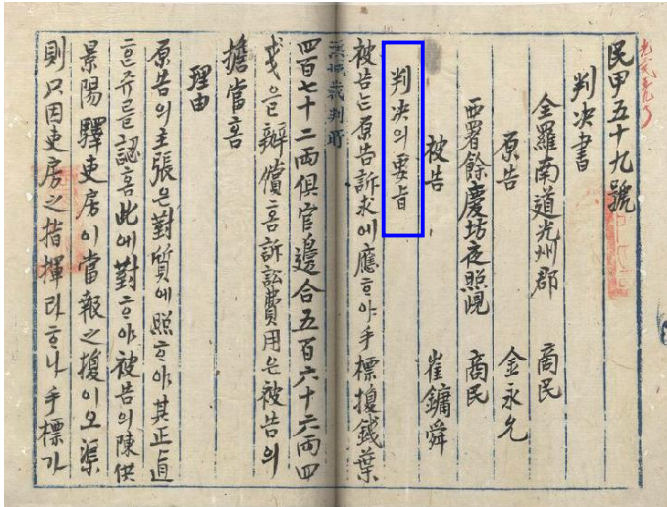 民甲五十九號
判决書
全羅南道光州郡 商民
原告 金永允
西署餘慶坊夜照峴 商民
被告 崔鏞舜
判决의要旨
被告는原告訴求에應ᄒᆞ야手標搜錢葉
四百七十二兩俱官邊合五百六十六兩四
戔을辦償ᄒᆞᆷ訴訟費用은被告의
擔當ᄒᆞᆷ
理由
原告의主張은對質에照ᄒᆞ야其正直
ᄒᆞᆫ쥬를認ᄒᆞᆷ此에對ᄒᆞ야被告의陳供
景陽驛吏房이當報之搜이오渠
則只因吏房之指揮라ᄒᆞ나手標가
漢城裁判所